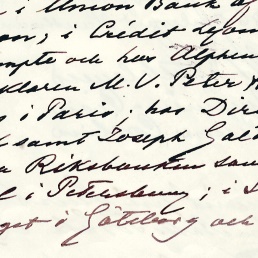 i Union Bank of
en; i Crédit lyon
mpte och hos Alphon
klaren M. V. Peter
s i Paris; hos Dir
samt Joseph Gol
Riksbanken sam
i Petersburg; i
get i Göteborg och